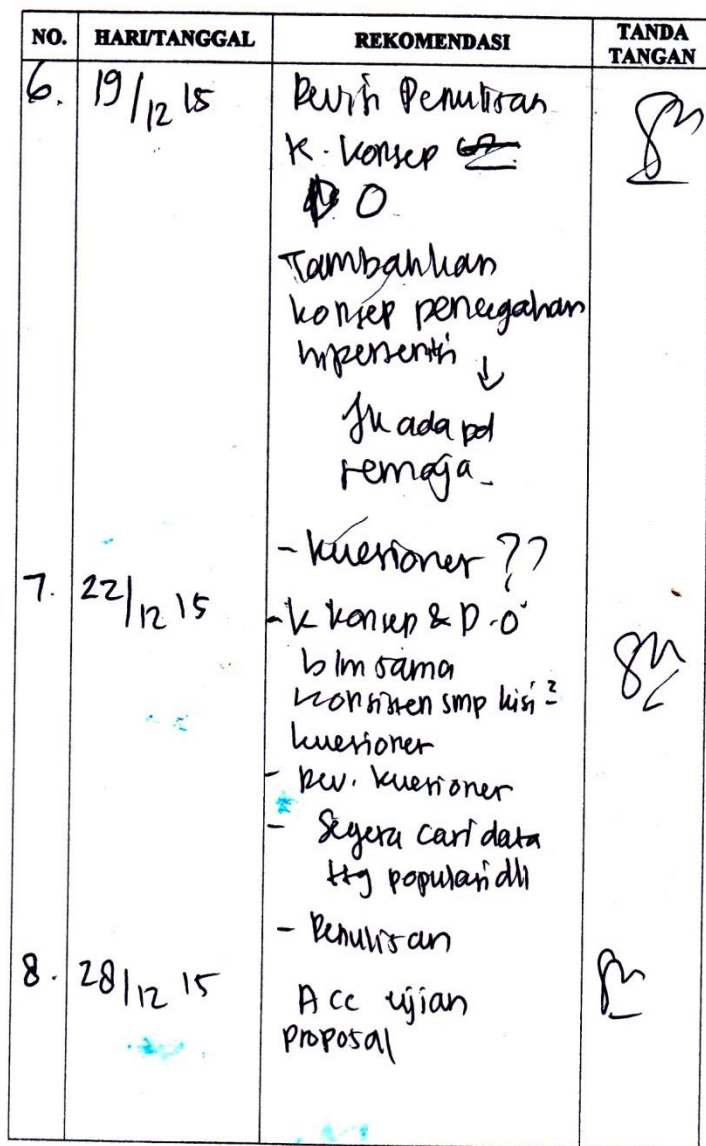 NO. HARI/TANGGAL REKOMENDASI TANDA TANGAN
6. 19/12 15 Revisi Penulisan
K. Konsep
D O
Tambahkan
konsep pencegahan
hipertensi ↓
Jk ada pd
remaja.
- Kuesioner ??
7. 22/12 15 - K Konsep & D.O
blm sama
konsisten smp kisi²
kuesioner
- Rev. kuesioner
- Segera cari data
ttg populasi dll
- Penulisan
8. 28/12 15 Acc ujian
proposal